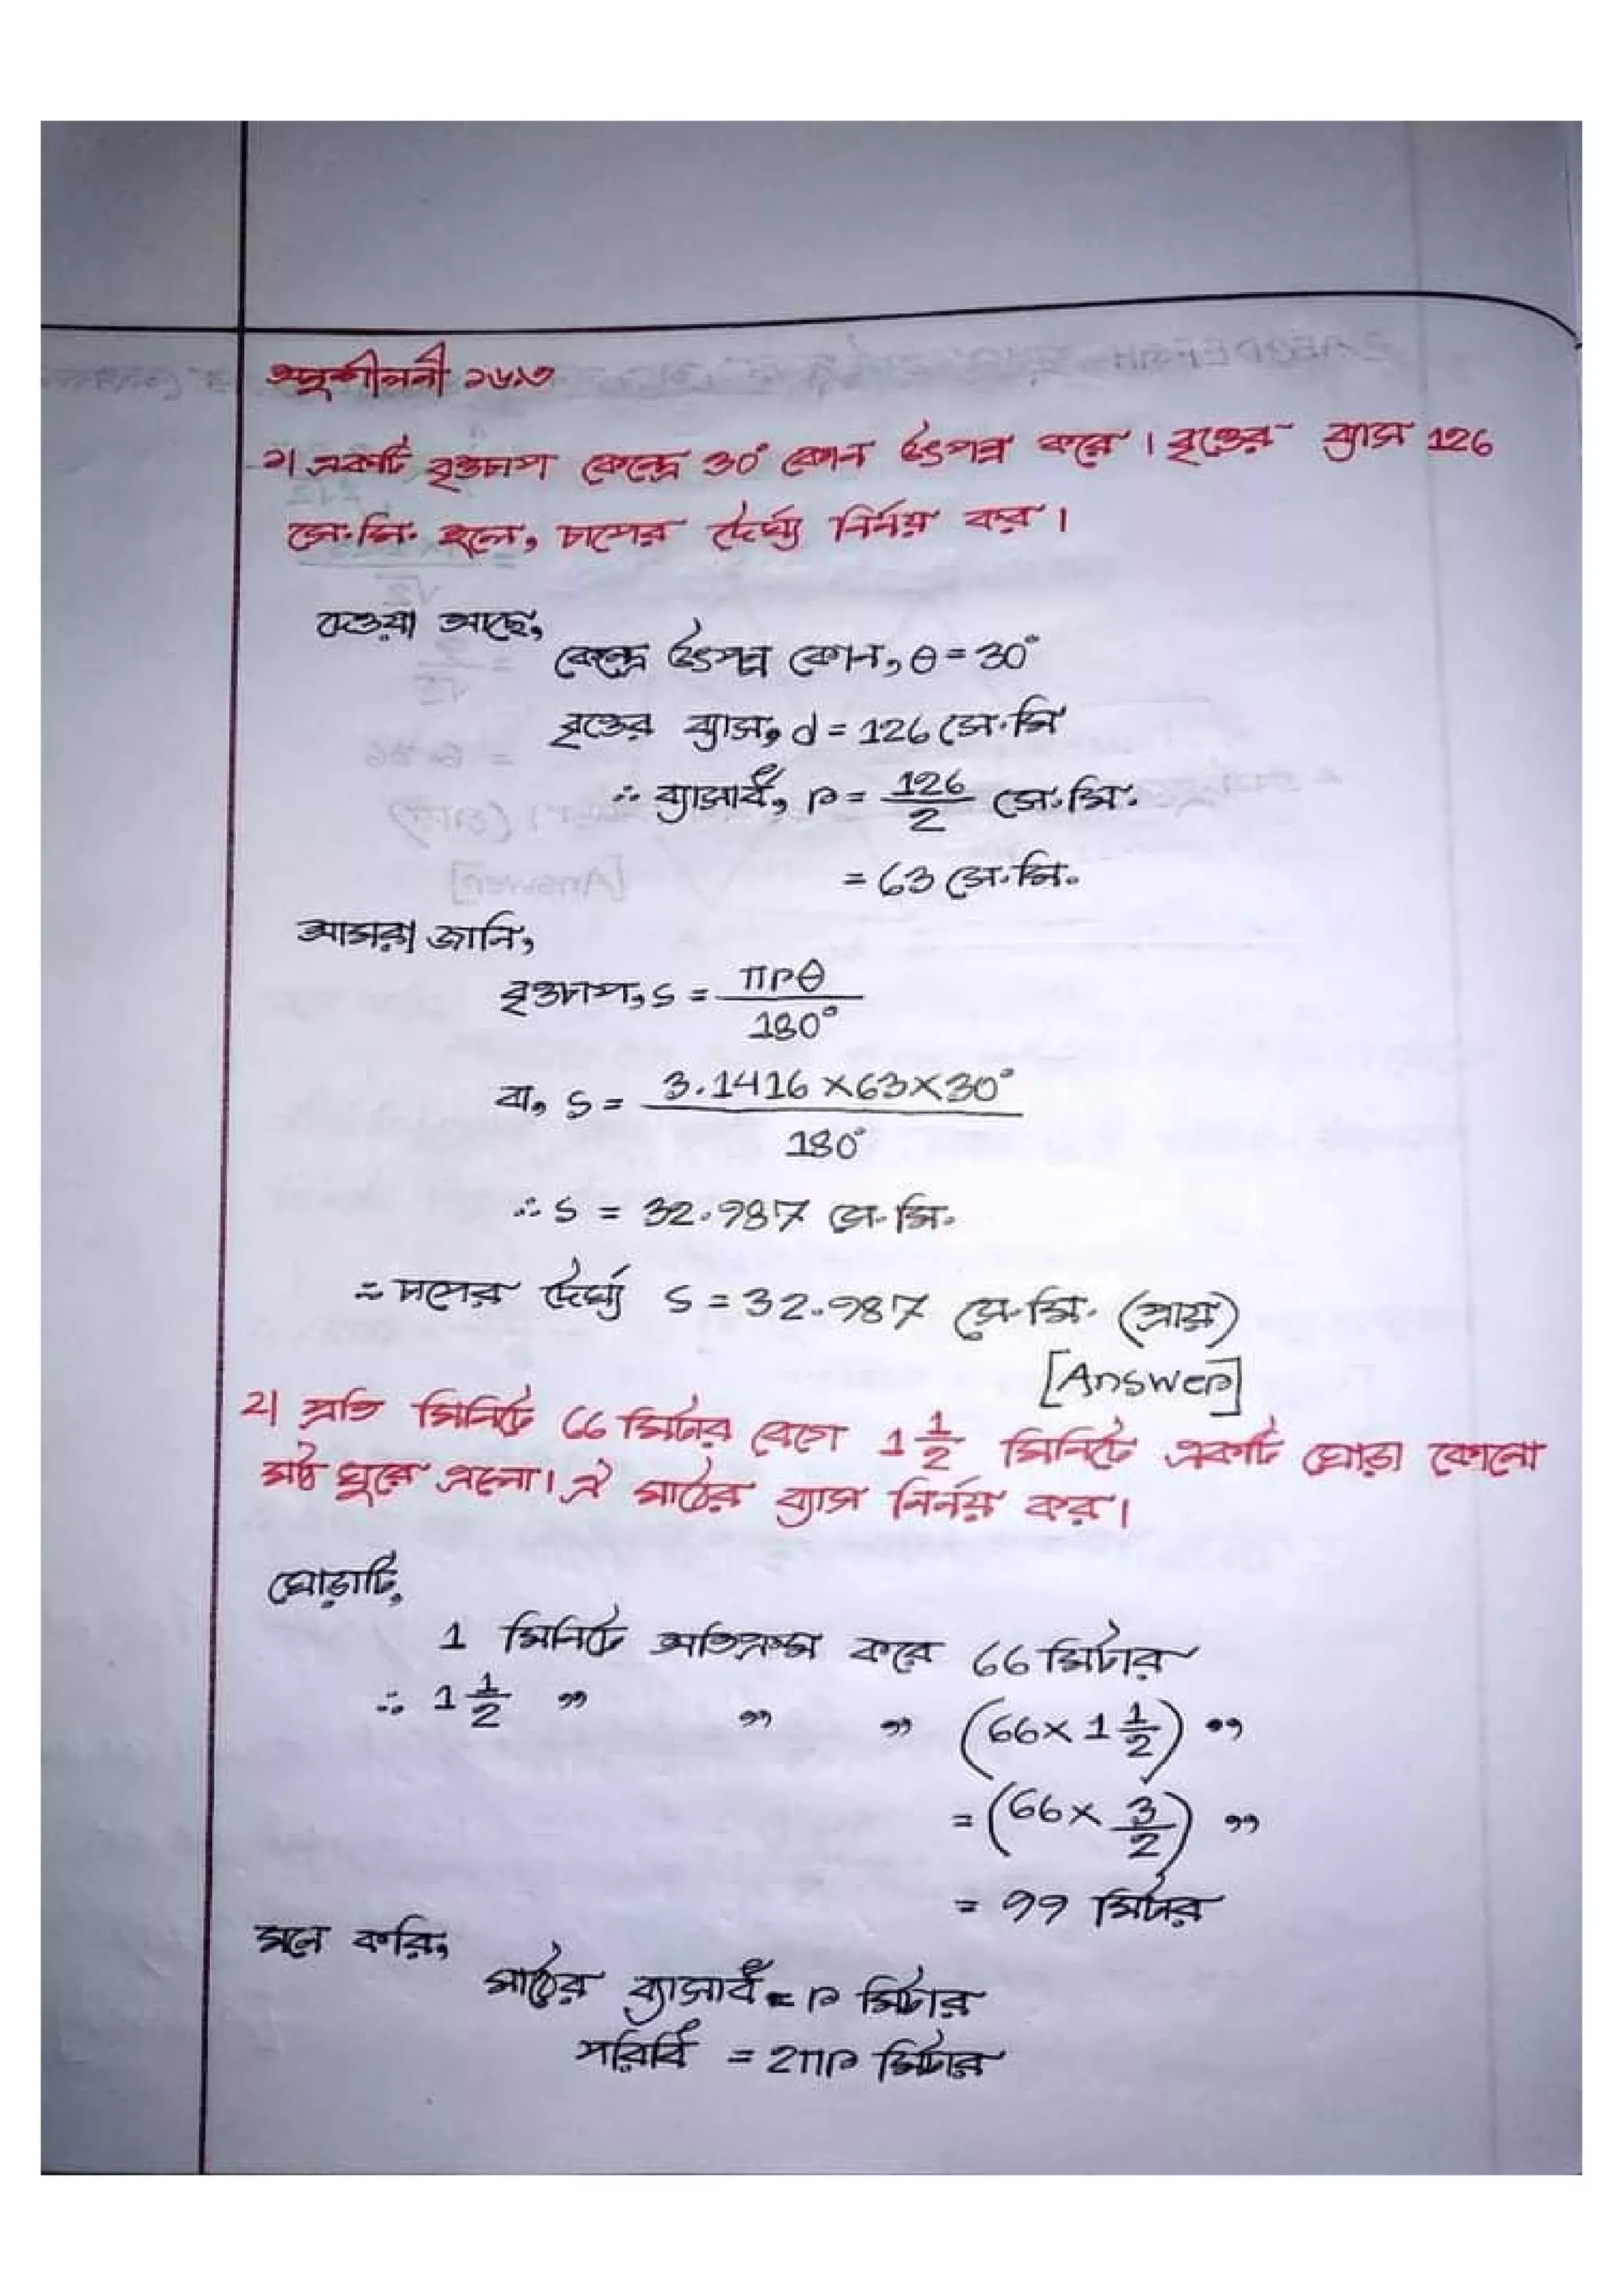 অনুশীলনী ১৬.৩
১। একটি বৃত্তচাপ কেন্দ্রে 30° কোন উৎপন্ন করে। বৃত্তের ব্যাস 126
সে.মি. হলে, চাপের দৈর্ঘ্য নির্নয় কর।
দেওয়া আছে,
কেন্দ্রে উৎপন্ন কোন, θ = 30°
বৃত্তের ব্যাস, d = 126 সে.মি
∴ ব্যাসার্ধ, r = 126/2 সে.মি.
= 63 সে.মি.
আমরা জানি,
বৃত্তচাপ, s = πrθ/180°
বা, s = 3.1416 × 63 × 30°/180°
∴ s = 32.987 সে.মি.
∴ চাপের দৈর্ঘ্য s = 32.987 সে.মি. (প্রায়)
[Answer]
2। প্রতি মিনিটে 66 মিটার বেগে 1 1/2 মিনিটে একটি ঘোড়া কোনো
মাঠ ঘুরে এলো। ঐ মাঠের ব্যাস নির্নয় কর।
ঘোড়াটি,
1 মিনিটে অতিক্রম করে 66 মিটার
∴ 1 1/2 " " " (66 × 1 1/2) "
= (66 × 3/2) "
= 99 মিটার
মনে করি,
মাঠের ব্যাসার্ধ = r মিটার
পরিধি = 2πr মিটার